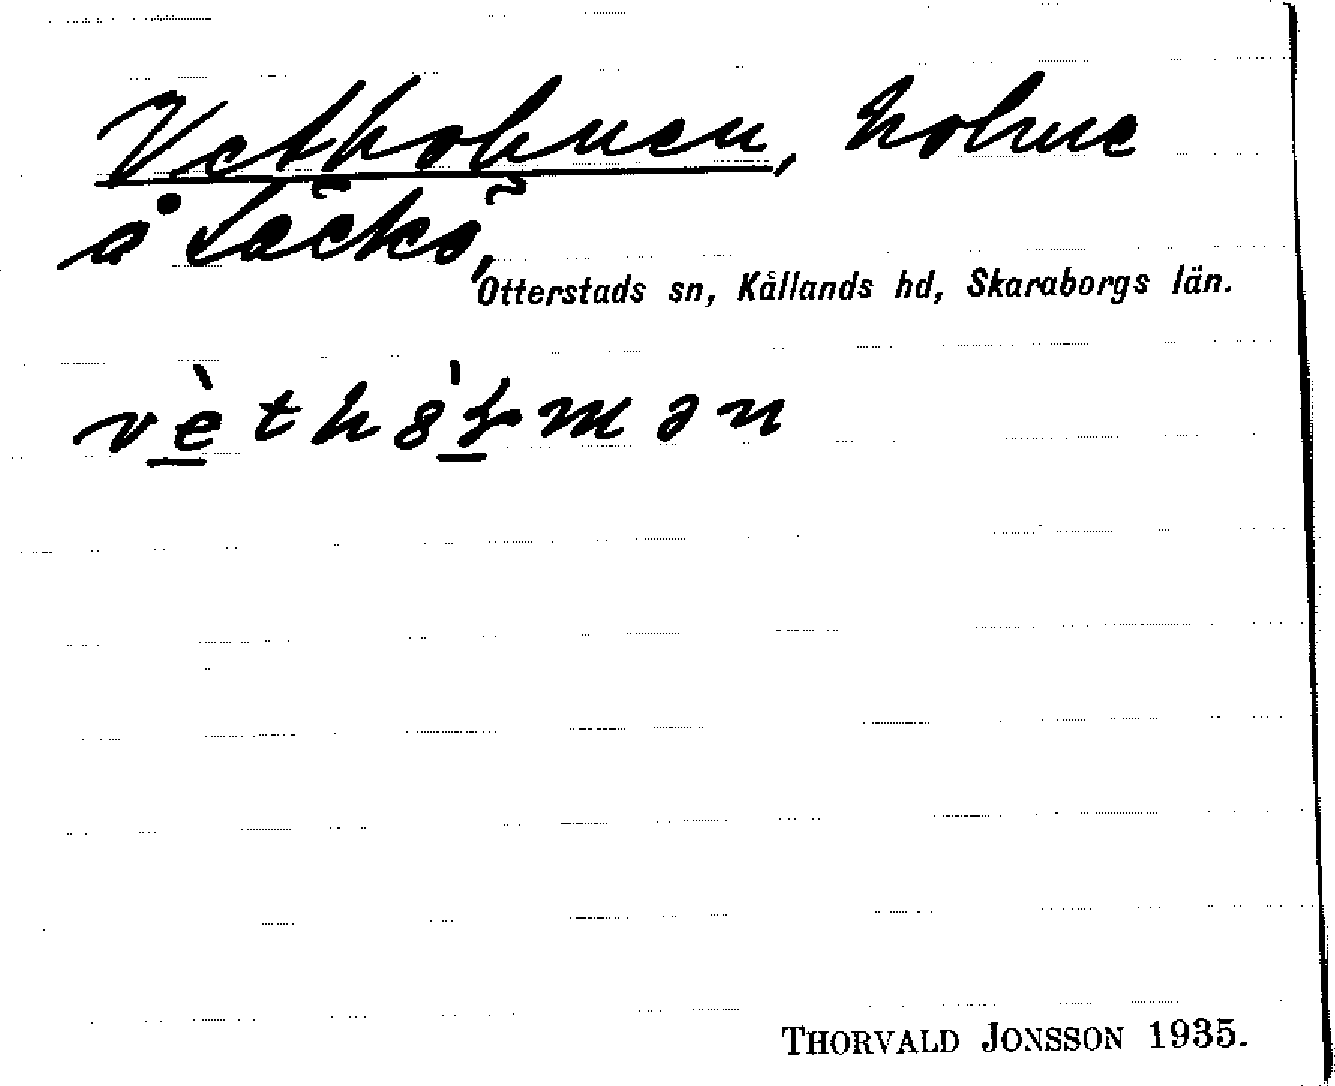 Vetholmen, holme
å Läckö,
Otterstads sn, Kållands hd, Skaraborgs län.
THORVALD JONSSON 1935.